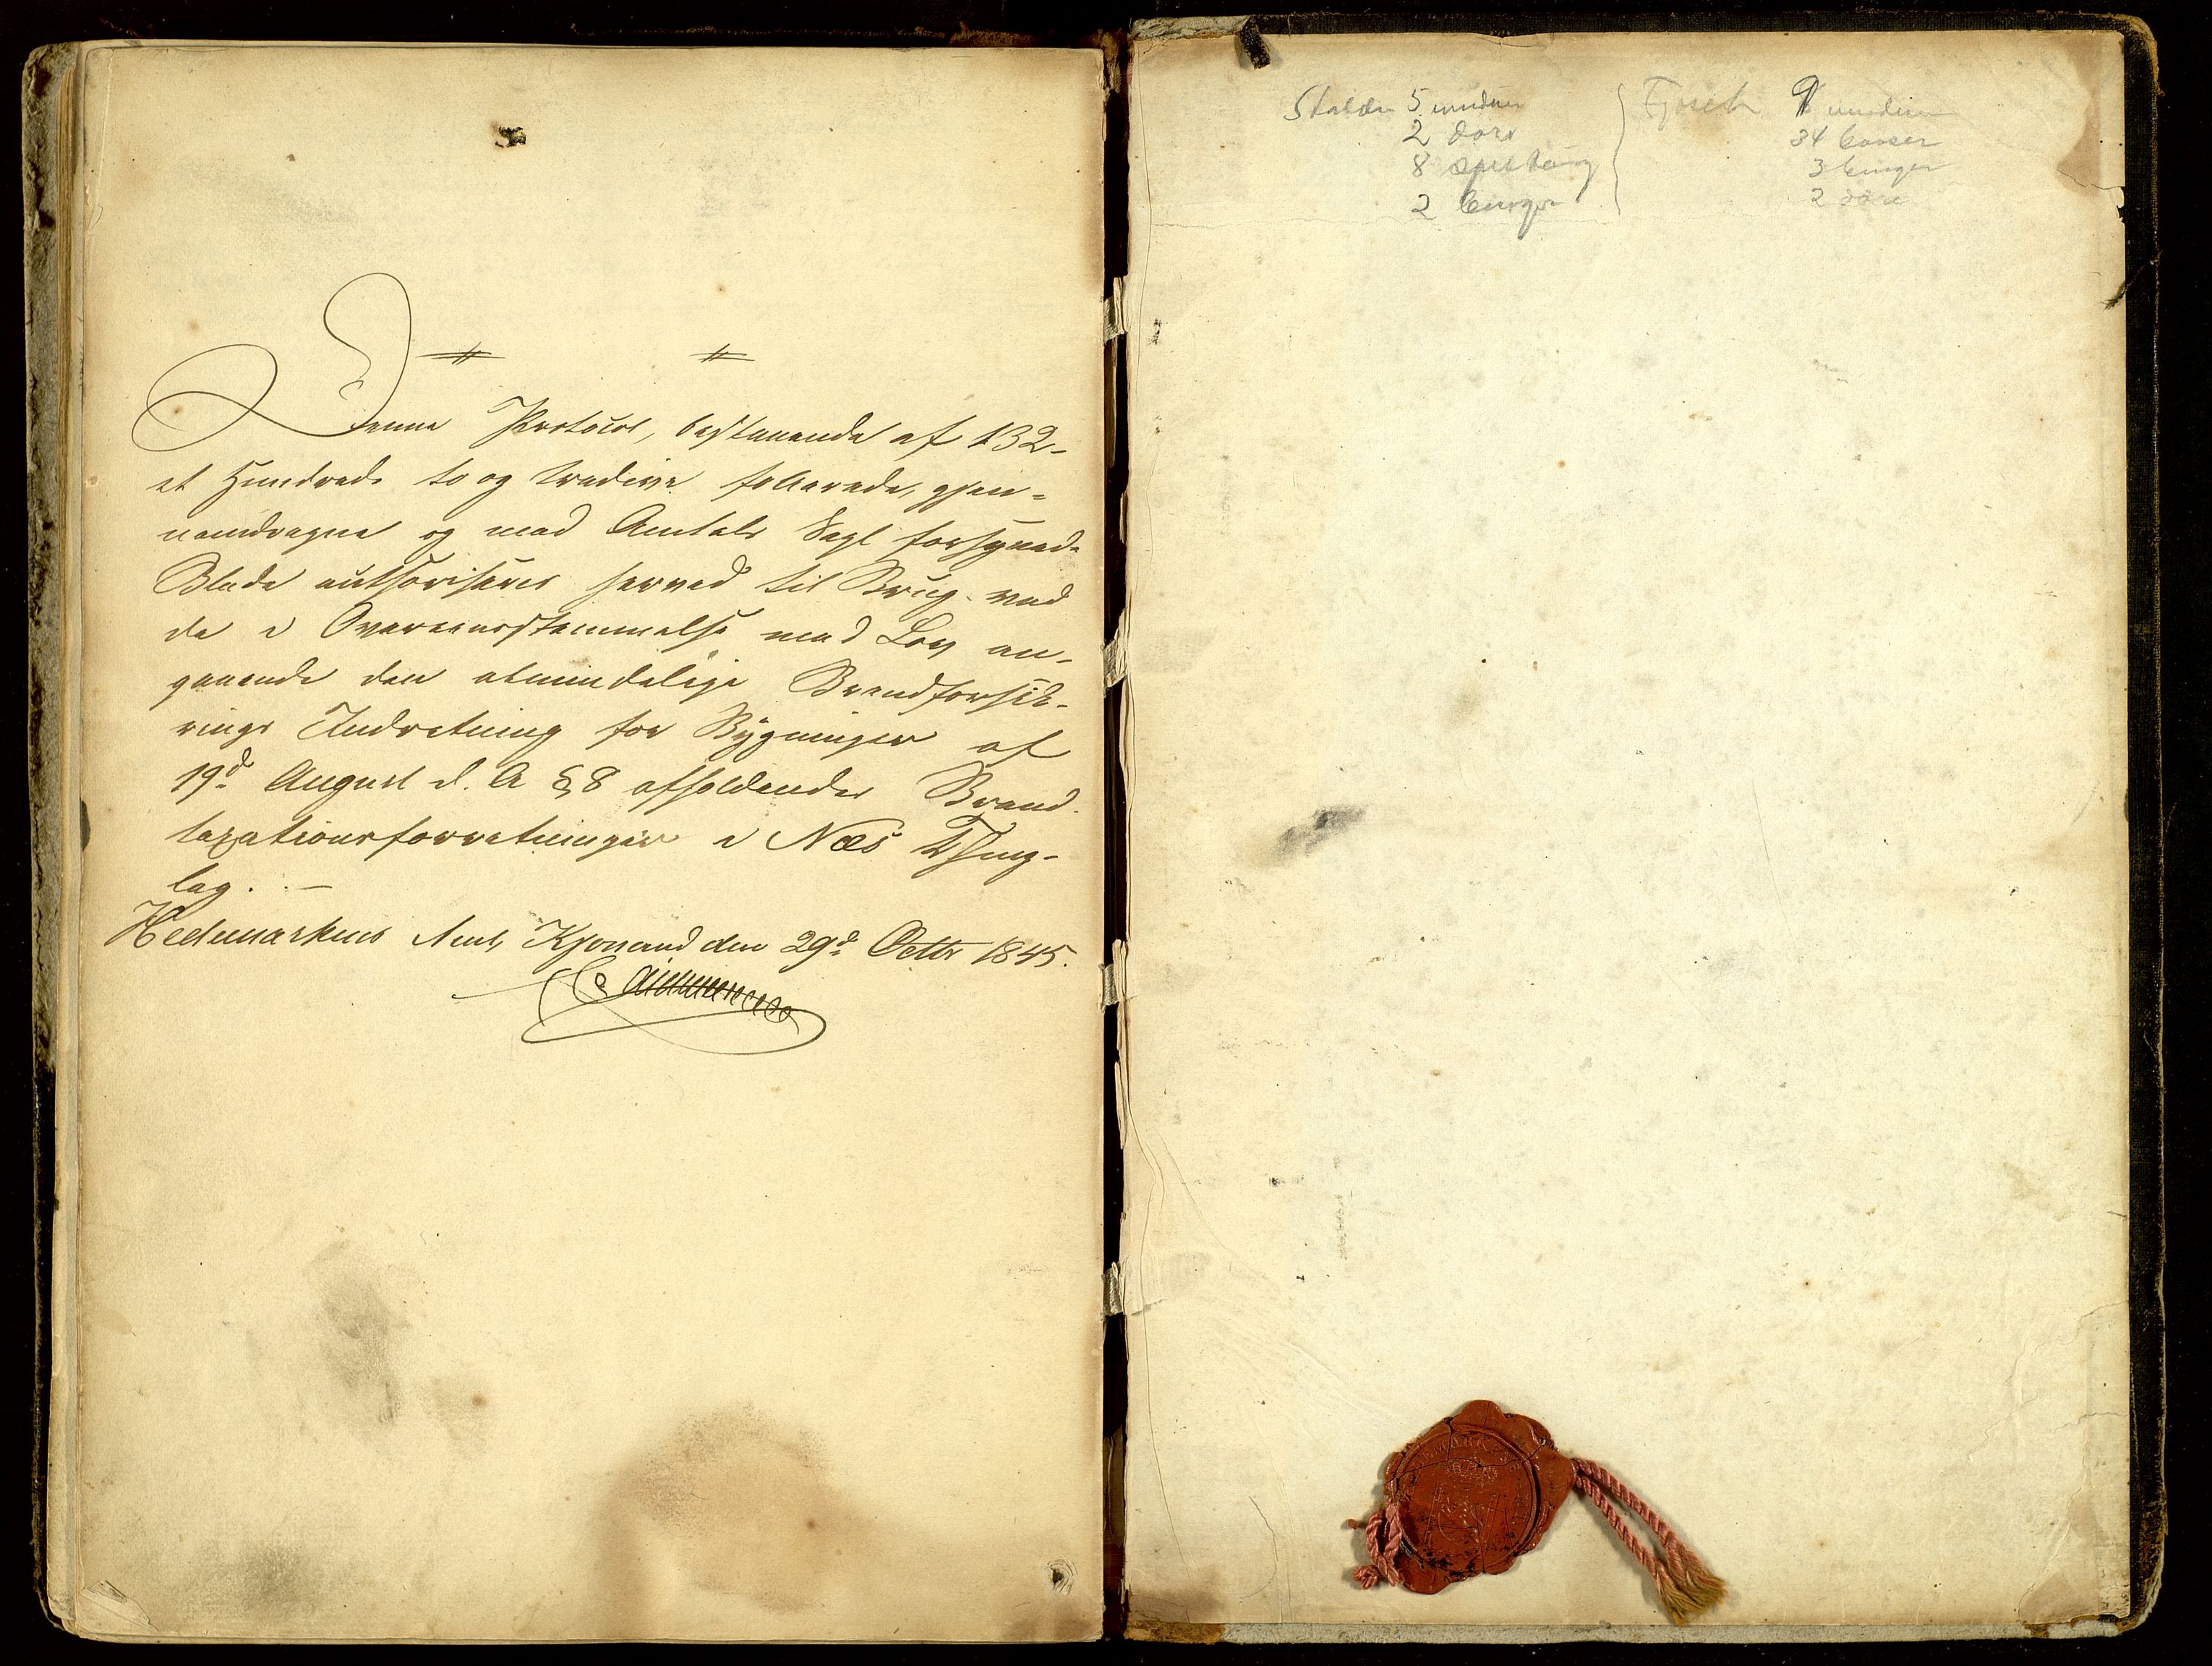 Denne Protocol, bestaaende af 132-
et Hundrede to og tredive folierede, gjen-
nemdragne og med Amtets Segl forsynede
Blade authoriseres herved til Brug ved
de i Overeensstemmelse med Lov an-
gaaende den almindelige Brandforsik-
rings Indretning for Bygninger af
19d August d. A § 8 afholdende Brand-
taxationsforretninger i Næs Thing-
lag. -
Hedemarkens Amt, den 29d Octbr 1845.
Stalden 5 vinduer
2 døre
8 spiltoug
2 binger
Fjøset 9 vinduer
34 baaser
3 binger
2 døre